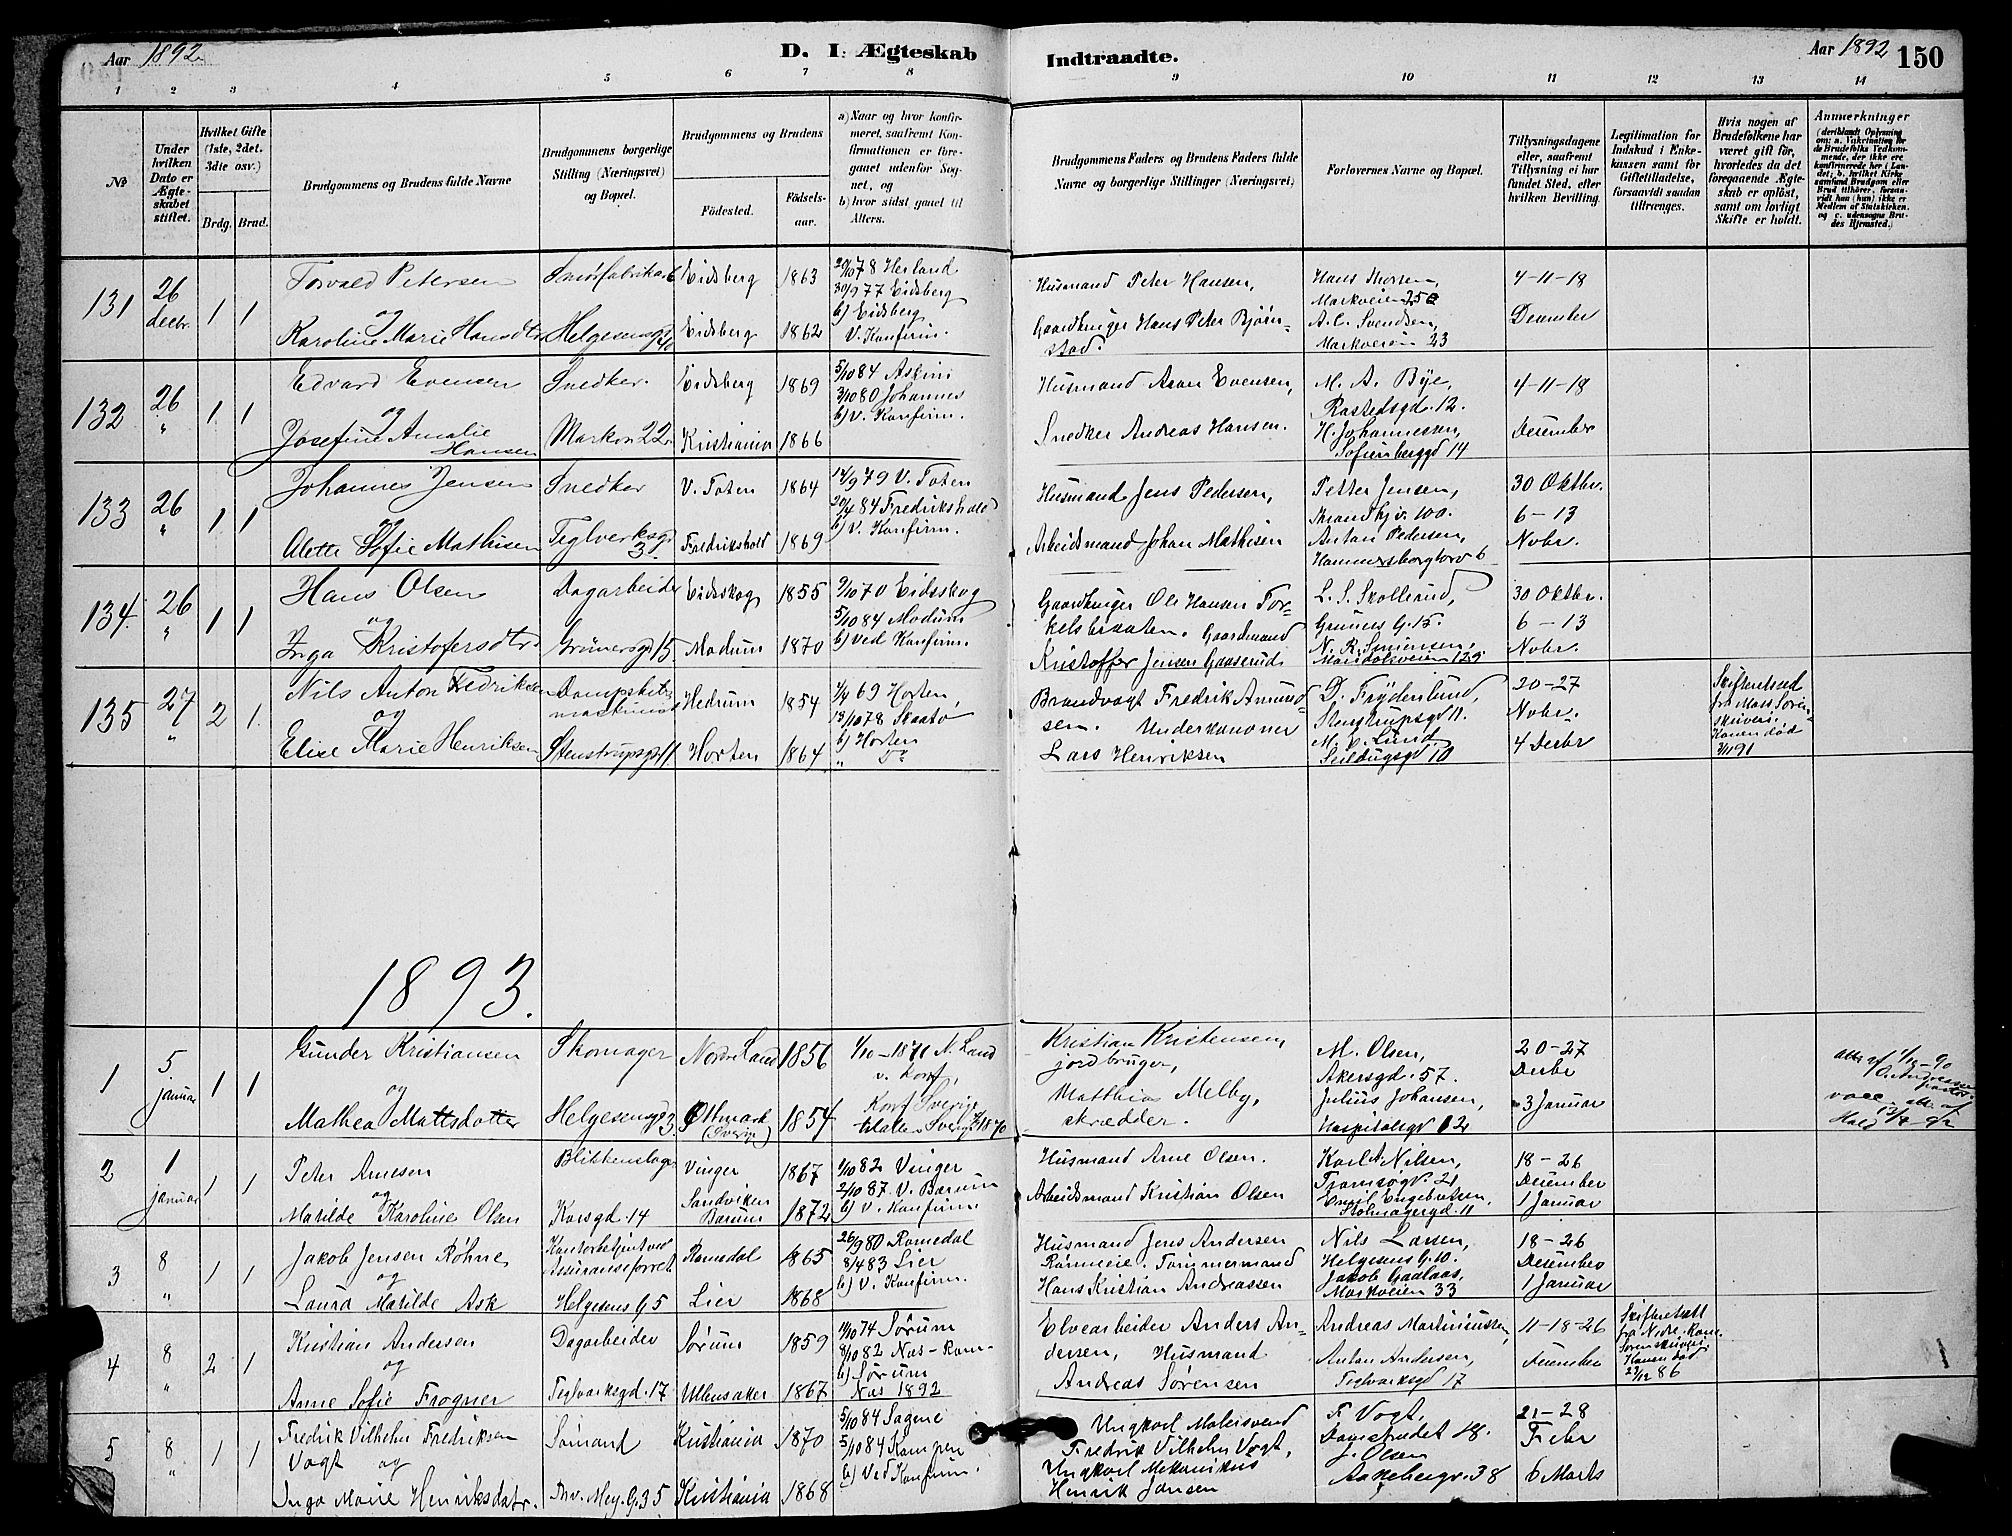 Aar 1892
D. I. Ægteskab
Indtraadte.
Aar 1892
150
1 2 3 4 5 6 7 8 9 10 11 12 13 14
№
Under
hvilken
Dato er
Ægte-
skabet
stiftet.
Hvilket Gifte
(1ste, 2det.
3die osv.)
Brdg. Brud.
Brudgommens og Brudens fulde Navne
Brudgommens borgerlige
Stilling (Næringsvei)
og Bopæl.
Brudgommens og Brudens
Födested.
Födsels-
aar.
a) Naar og hvor konfir-
meret, saafremt Kon-
firmationen er fore-
gaaet udenfor Sog-
net, og
b) hvor sidst gaaet til
Alters.
Brudgommens Faders og Brudens Faders fulde
Navne og borgerlige Stillinger (Næringsvei)
Forlovernes Navne og Bopæl.
Tillysningsdagene
eller, saafremt
Tillysning ei har
fundet Sted, efter
hvilken Bevilling.
Legitimation for
Indskud i Enke-
kassen samt for
Giftetilladelse,
forsaavidt saadan
tiltrænges.
Hvis nogen af
Brudefolkene har
været gift för,
hvorledes da det
foregaaende Ægte-
skab er oplöst,
samt om lovligt
Skifte er holdt.
Anmærkninger
(deriblandt Oplysning
om: a. Vaksination for
de Brudefolks Vedkom-
mende, der ikke ere
konfirmerede her i Lan-
det; b. hvilket Kirke-
samfund Brudgom eller
Brud tilhörer, forsaa-
vidt han (hun) ikke er
Medlem af Statskirken.
og c. udensogns Bru-
des Hjemsted.)
131 26 Decbr. 1 1
Torvald Petersen
og
Karoline Marie Hansdtr
Helgesensgd 40
Eidsberg 1863
Eidsberg 1862
20/10 78 Herland
30/9 77 Eidsberg
b) Eidsberg
v. Konfirm.
Husmand Peter Hansen,
Gaardbruger Hans Peter Bjørn-
stad.
Hans Thorsen,
Markveien 25
A. C. Svendsen,
Markveien 23
4-11-18
December
132 26 " 1 1
Edvard Evensen
og
Josefine Amalie
Hansen
Snedker.
Markvn 22
Eidsberg 1869
Kristiania 1866
5/10 84 Askim
3/10 80 Johannes
b) v. Konfirm.
Husmand Aron Evensen,
Snedker Andreas Hansen.
M. A. Bye,
Rastedsgd. 12.
H. Johannessen,
Sofienberggd 14
4-11-18
December
133 26 " 1 1
Johannes Jensen
og
Alette Sofie Mathisen
Snedker
Teglverksgd
3.
V. Toten 1864
Fredrikshald 1869
14/9 79 V. Toten
20/4 84 Fredrikshald
b) v. Konfirm.
Husmand Jens Pedersen,
Arbeidsmand Johan Mathisen
Petter Jensen,
Trondhj.v. 100.
Anton Pedersen,
Hammersborgtorv 6
30 Oktbr.
6-13
Nobr.
134. 26 " 1 1
Hans Olsen
og
Inga Kristofersdtr.
Dagarbeider
Grünersgd 15.
Eidskog 1855
Modum 1870
2/10 70 Eidsskog
5/10 84 Modum
b) ved Konfirm.
Gaardbruger Ole Hansen Tor-
kelsbraaten. Gaardmand
Kristoffer Jensen Gaaserud.
L. S. Skollerud,
Gruners G. 15.
N. R. Simensen,
Maridalsveien 129
30 Oktbr.
6-13
Nobr.
135 27 " 2 1.
Nils Anton Fredriksen
og
Elise Marie Henriksen
Dampskibs
maskinist
Stenstrupsgd 11
Hedrum 1854
Horten 1864
1/4 69 Horten
13/10 78 Skaatø
b) Horten
" do
Brandvagt Fredrik Amund-
sen. Underkanoner
Lars Henriksen
D. Frydenlund,
Stenstrupsgd 11.
M. C. Lund
Seildugsgd 10
20-27
Nobr.
4 Decbr
Skifteattest
fra Moss Soren-
skriveri.
Konen død
3/11 91
1893.
1 5 januar 1 1
Gunder Kristiansen
og
Mathea Mattsdotter
Skomager
Helgesensgd 3.
Nordre Land 1856
Östmark
(Sverige)
1854
1/10-1871 N. Land
v. Konf,
Konf Sverige
Kristian Kristensen,
jordbruger,
Matthias Melby,
skrædder.
M. Olsen,
Akersgd. 57.
Julius Johansen,
Hospitalsgd 12
20-27
Decbr
3 Januar
2 1 januar 1 1
Peter Arnesen
og
Matilde Karoline Olsen
Blikkenslager
Korsgd. 14
Vinger 1867
Sandviken
Bærum 1872
1/10 82 Vinger
2/10 87. V. Bærum
b) v. Konfirm
Husmand Arne Olsen.
Arbeidsmand Kristian Olsen
Karl A. Nilsen,
Tromsøgd. 21
Emil Engebretsen,
Stolmagergd. 11
18-26
December
1 Januar
3 8 " 1 1
Jakob Jensen Röhne
og
Laura Matilde Ask
Kontorbetjent ved
Assuranseforret
Helgesens G. 5
Romedal 1865
Lier 1868
26/9 80 Romedal
8/4 83 Lier
b) v. Konfirm.
Husmand Jens Andersen
Rønneeie. Tømmermand
Hans Kristian Andreassen
Nils Larsen,
Helgesens G. 10.
Jakob Gaalaas,
Markveien 33
18-26
December
1 Januar
4 8 " 2 1
Kristian Andersen
og
Anne Sofie Frogner
Dagarbeider
Teglværksgd. 17
Sørum 1859
Ullensaker 1867
11/10 74 Sørum
8/10 82 Næs-Rom-
b) Sørum
Næs 1892
Elvearbeider Anders An-
dersen, Husmand
Andreas Sørensen
Andreas Martiniussen,
Anton Andersen,
Teglværksgd 17
11-18-26
December
Skifteattest
fra Nedre Rome.
Sorenskriveri.
Konen død
23/12 86
5 8 " 1 1
Fredrik Vilhelm Fredriksen
Vogt og
Inga Marie Henriksdatr.
Sømand
Thv. Mey. G. 35
Kristiania 1870
Kristiania 1868
5/10 84 Sagene
5/10 84 Kampen
b) Ved Konfirm.
Ungkarl Malersvend
Fredrik Vilhelm Vogt,
Ungkarl Mekanikus
Henrik Jansen
F. Vogt,
Damstrædet 18.
J. Olsen
Aakebergv. 38
21-28
Febr
6 Marts